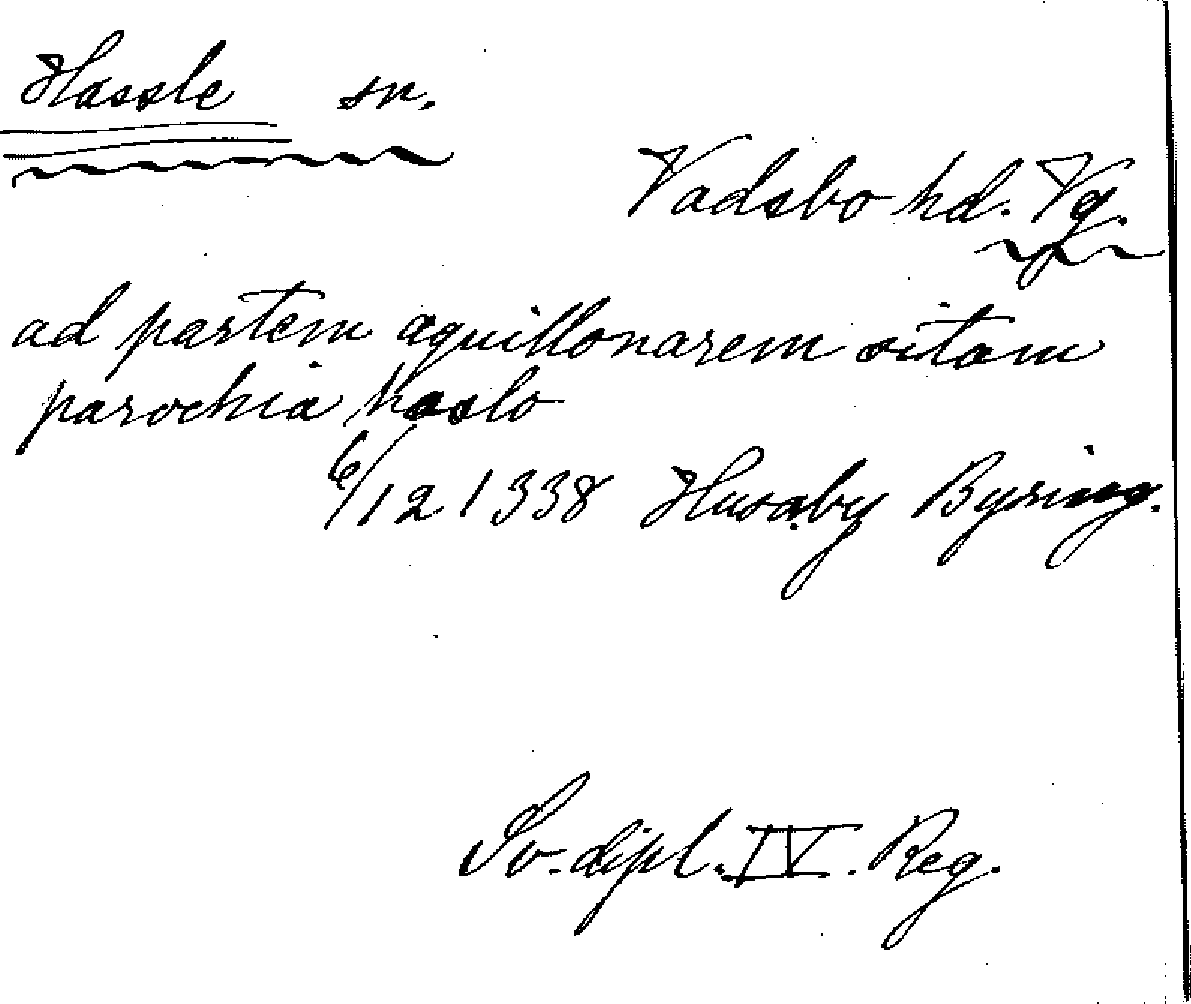 Hassle sn.
Vadsbo hd. Vg.
ad partem aquillonarem sitam
parochia haslo
6/12 1338 Husaby Bysing.
Sv. dipl. IV. Reg.